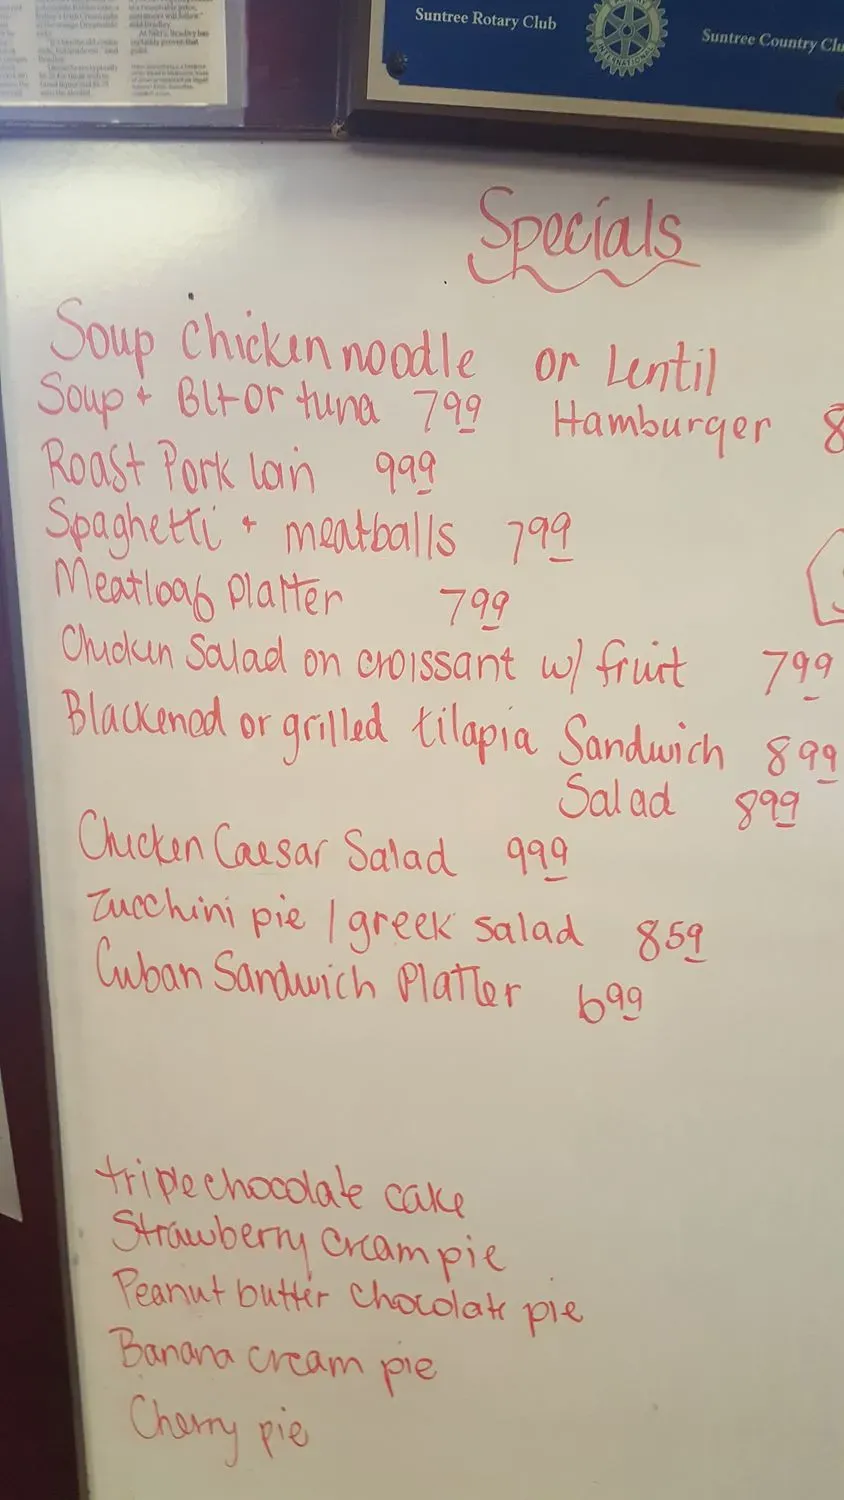 Suntree Rotary Club
Suntree Country Clu
INTERNATIONAL
Specials
Soup chicken noodle or Lentil
Soup + Blt or tuna 799 Hamburger 8
Roast Pork loin 999
Spaghetti + meatballs 799
Meatloaf platter 799
Chicken Salad on croissant w/ fruit 799
Blackened or grilled tilapia Sandwich 899
Salad 899
Chicken Caesar Salad 999
Zucchini pie / greek salad 859
Cuban Sandwich Platter 699
triple chocolate cake
Strawberry cream pie
Peanut butter chocolate pie
Banana cream pie
Cherry pie